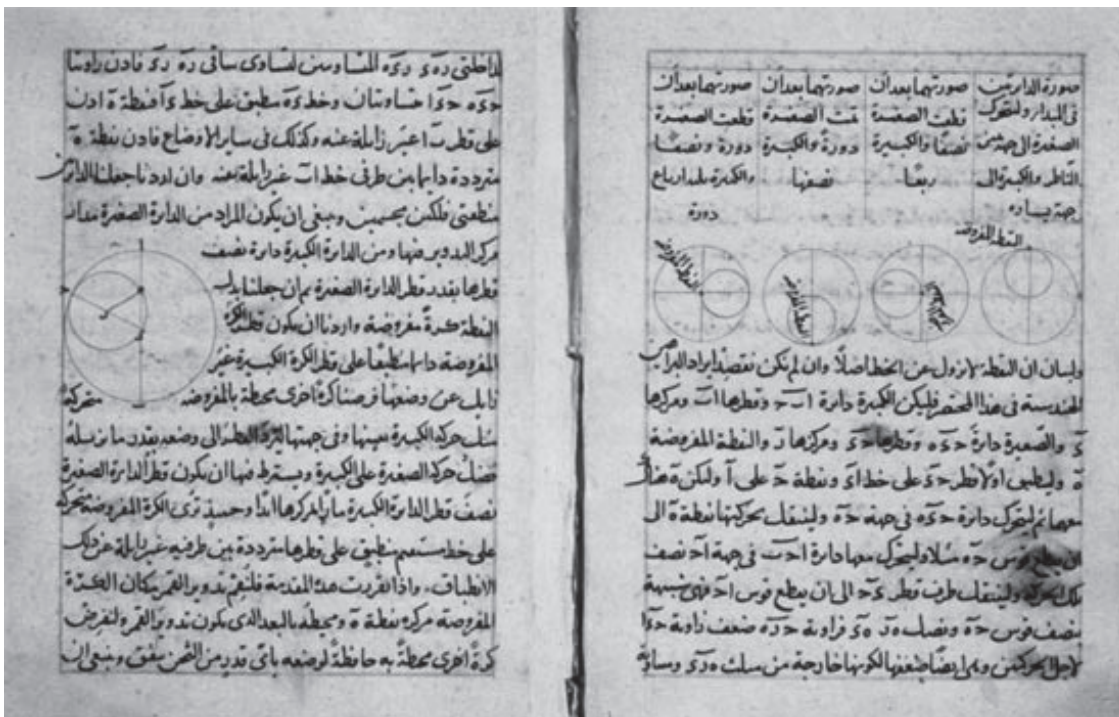 صورة الدائرتين
فى المبدا ولتتحرك
الصغيرة الى جهة يمين
الناظر والكبيرة الى
جهة يساره
صورتهما بعد أن
قطعت الصغيرة
نصفًا والكبيرة
ربعًا
صورتهما بعد أن
تمت الصغيرة
دورةً والكبيرة
نصفها
صورتهما بعد أن
قطعت الصغيرة
دورة ونصفا
والكبيرة ثلثة ارباع
دورة
النقطة المفروضة
النقطة المفروضة
النقطة المفروضة
ولبيان ان النقطة لا تزول عن الخط اصلاً وان لم نكن نقصد ايراد البراهين
الهندسية فى هذا المختصر فليكن الكبيرة دايرة ا ب ح وقطرها ا ب ومركزها
ء والصغيرة دايرة ح ء ه وقطرها ح ء ومركزها ر والنقطة المفروضة
ه وليطبق اولا قطر ح ء على خط ا ء ونقطة ح على ا ولتكن ه هناك
معهما ثم ليتحرك دايرة ح ء ه فى جهة ح ه ولينتقل بحركتها نقطة ه الى
ان يقطع قوس ح ه مثلا وليتحرك معها دايرة ا ح ب فى جهة ا ح نصف
تلك الحركة ولينتقل طرف قطر ء ح الى ان يقطع قوس ا ح فهى شبيهة
بنصف قوس ح ه ونصل ه ر ه ء فزاوية ح ر ه ضعف زاوية ح ء ا
لاجل الحركتين وهى ايضا ضعف لكونها خارجة من مثلث ه ر ء ومساوية
لداخلتى ر ه ء ر ء ه المتساويتين لتساوى ساقى ر ه ر ء فاذن زاويتا
ح ء ه ح ء ا متساويتان وخط ء ه منطبق على خط ء ا فنقطة ه اذن
على قطر ا ب غير زايلة عنه وكذلك فى ساير الاوضاع فاذن نقطة ه
مترددة دايما بين طرفى خط ا ب غير زايلة عنه وان اردنا جعلنا الدايرتين
منطقتى فلكين مجسمين وينبغى ان يكون المراد من الدايرة الصغيرة مدار
مركز التدوير فيها ومن الدايرة الكبيرة دايرة نصف
قطرها بقدر قطر الدايرة الصغيرة ثم ان جعلنا بدل
النقطة كرة مفروضة واردنا ان يكون قطر الكرة
المفروضة دايما منطبقا على قطر الكرة الكبيرة غير
زايل عن وضعها فرضنا كرة اخرى محيطة بالمفروضة متحركة
مثل حركة الكبيرة بعينها وفى جهتها ليرد القطر الى وضعه بقدر ما يزيله
فضل حركة الصغيرة على الكبيرة ويشترط فيها ان يكون قطر الدايرة الصغيرة
نصف قطر الدايرة الكبيرة مارا بمركزها ابدا وحينئذ ترى الكرة المفروضة متحركة
على خط مستقيم منطبق على قطرها مترددة بين طرفيه غير زايلة عن ذلك
الانطباق واذا تقررت هذه المقدمة فلنقم تدوير القمر مكان الكرة
المفروضة مركزه نقطة ه ومحيطه بالبعد الذى يكون تدوير القمر ولنفرض
كرةً اخرى محيطةً به حافظةً لوضعه باى قدر من الثخن يتفق وينبغى ان